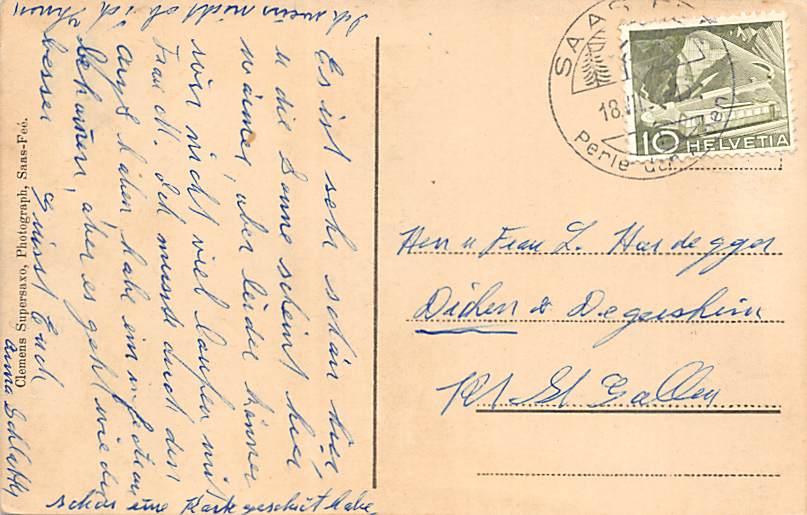 SAAS-FEE
18.VII.
Perle der Alpen
10 HELVETIA
Herr u Frau L. Hardegger
Dicken b Degersheim
Kt St Gallen
Es ist sehr schön hier,
u die Sonne scheint hier
wärmer, aber leider können
wir nicht viel laufen mit
Frau M. Ich musste durch den
Arzt haben habe ein
bekommen, aber es geht wieder
besser
grüsst Euch
Anna Schlatter
Ich weiss nicht ob ich Ihnen
schon eine Karte geschickt habe,
Clemens Supersaxo, Photograph, Saas-Fee.